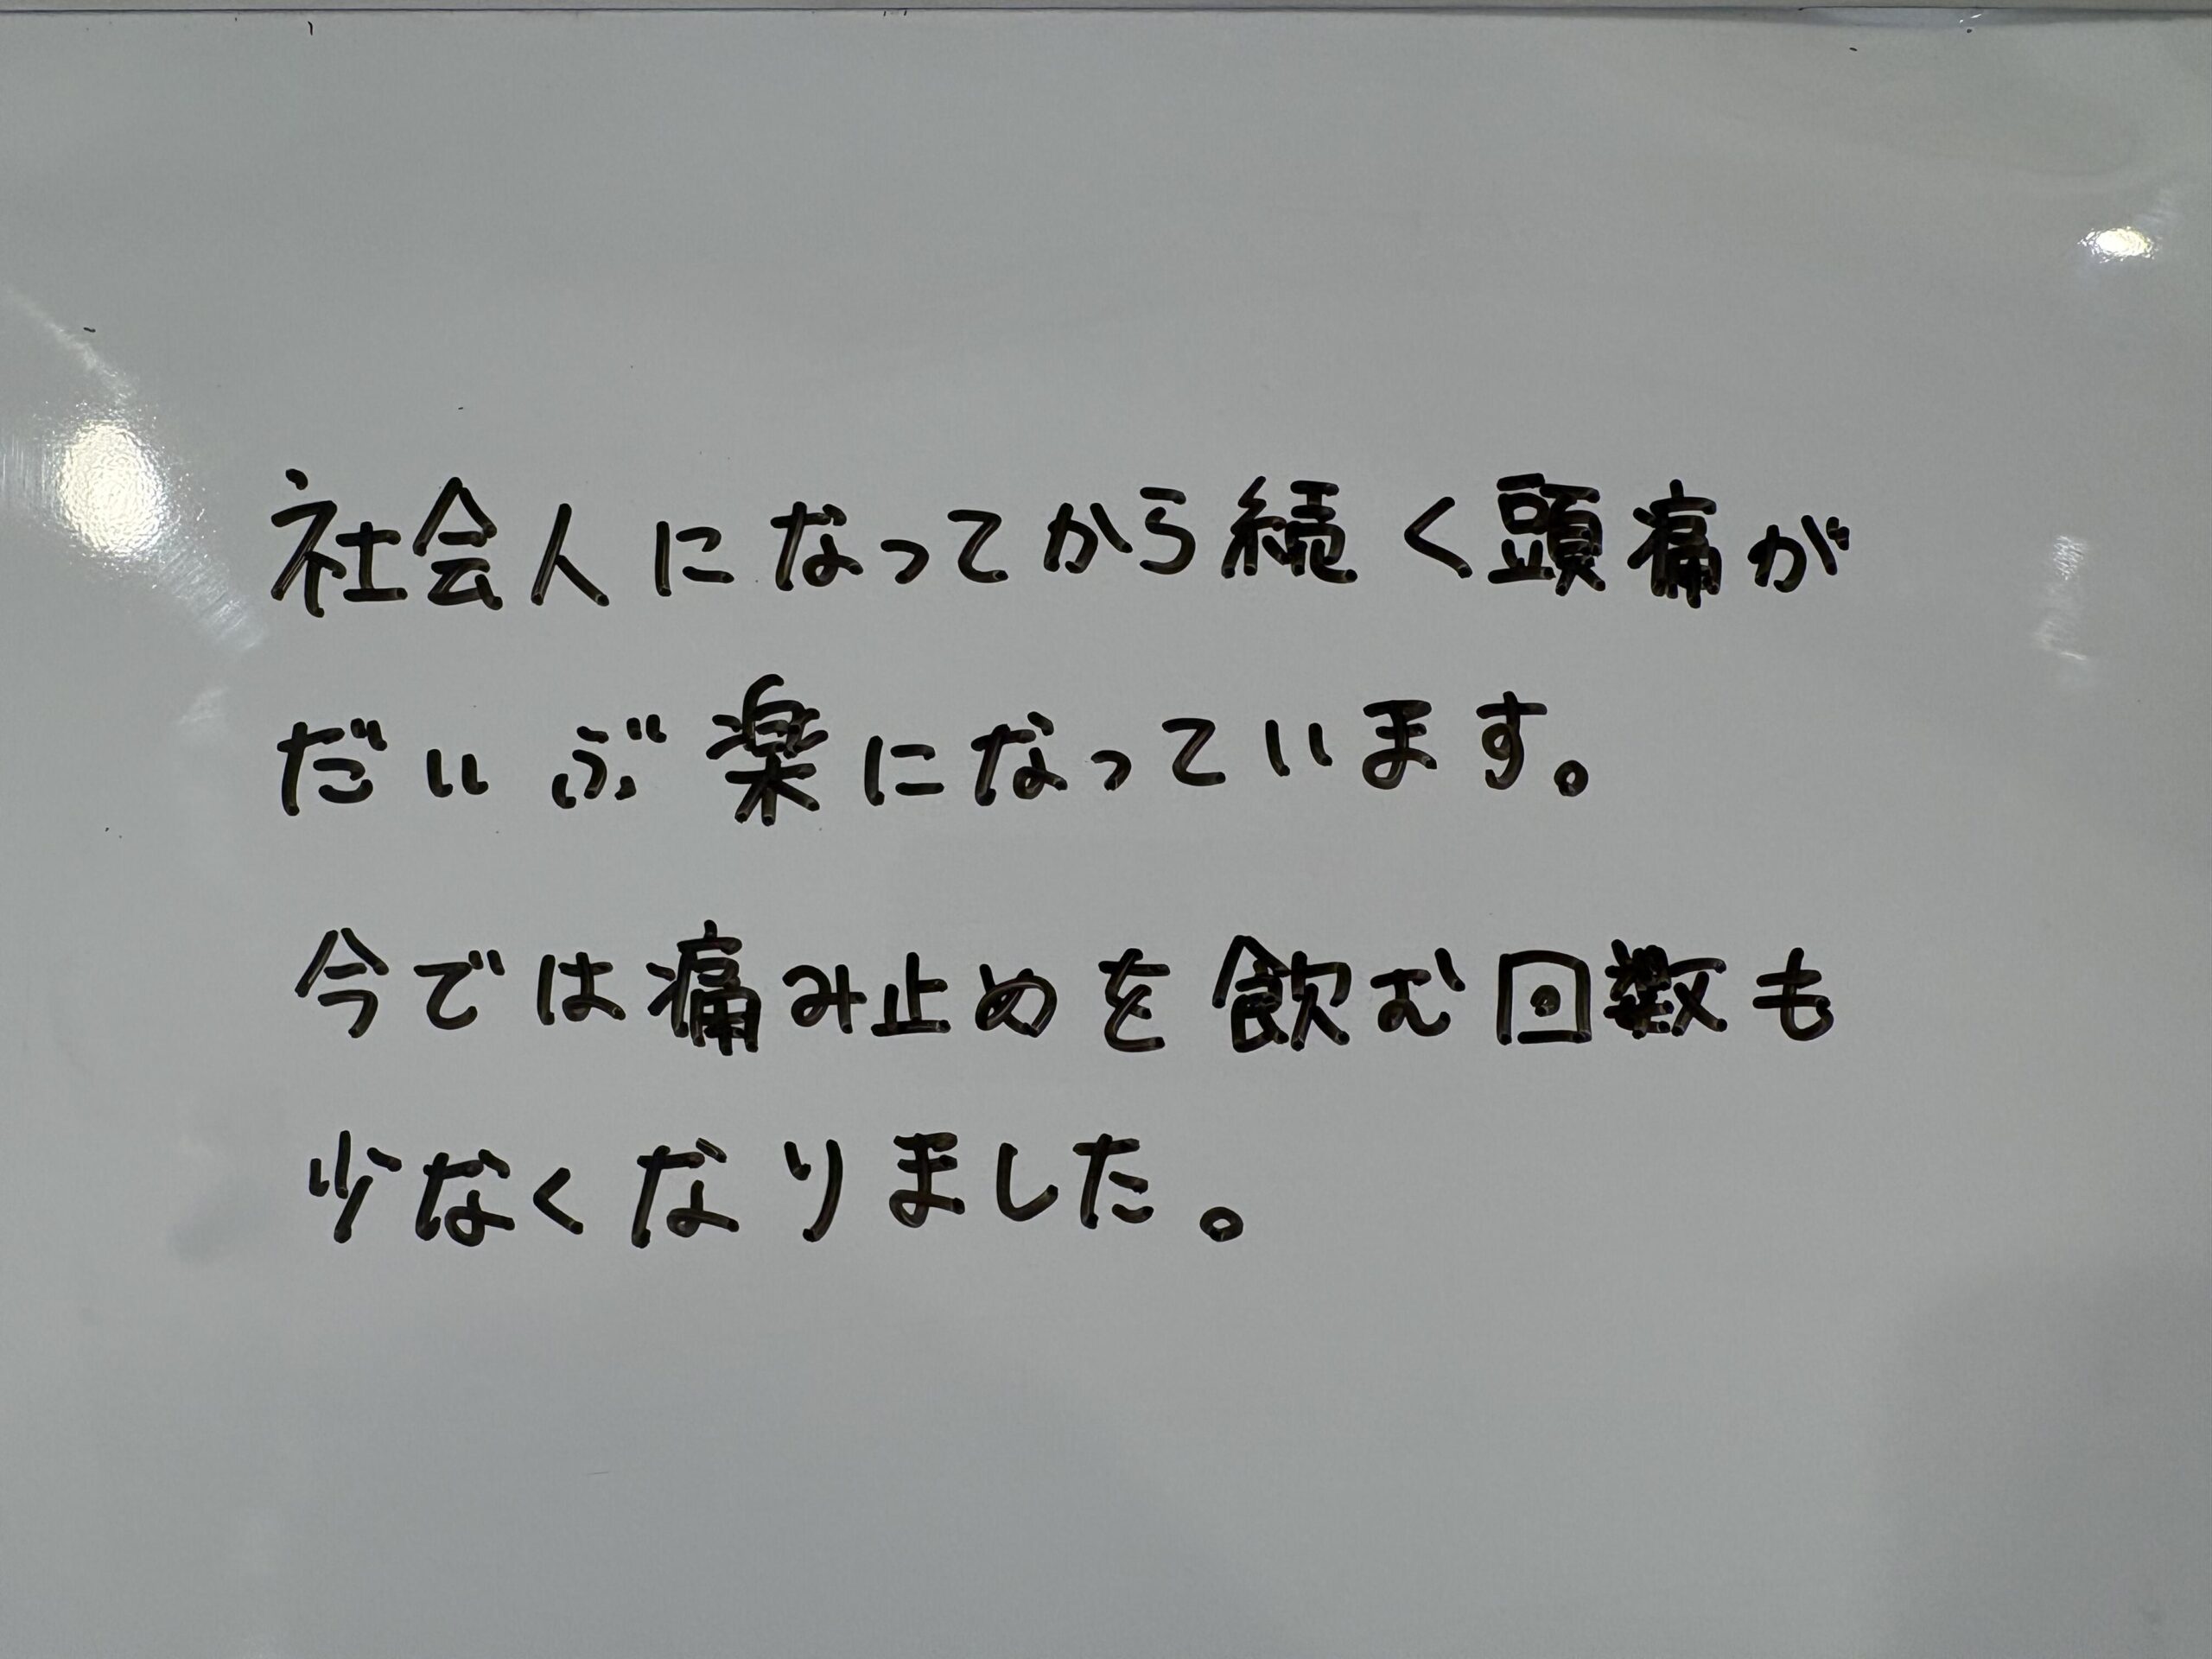 社会人になってから続く頭痛が
だいぶ楽になっています。
今では痛み止めを飲む回数も
少なくなりました。